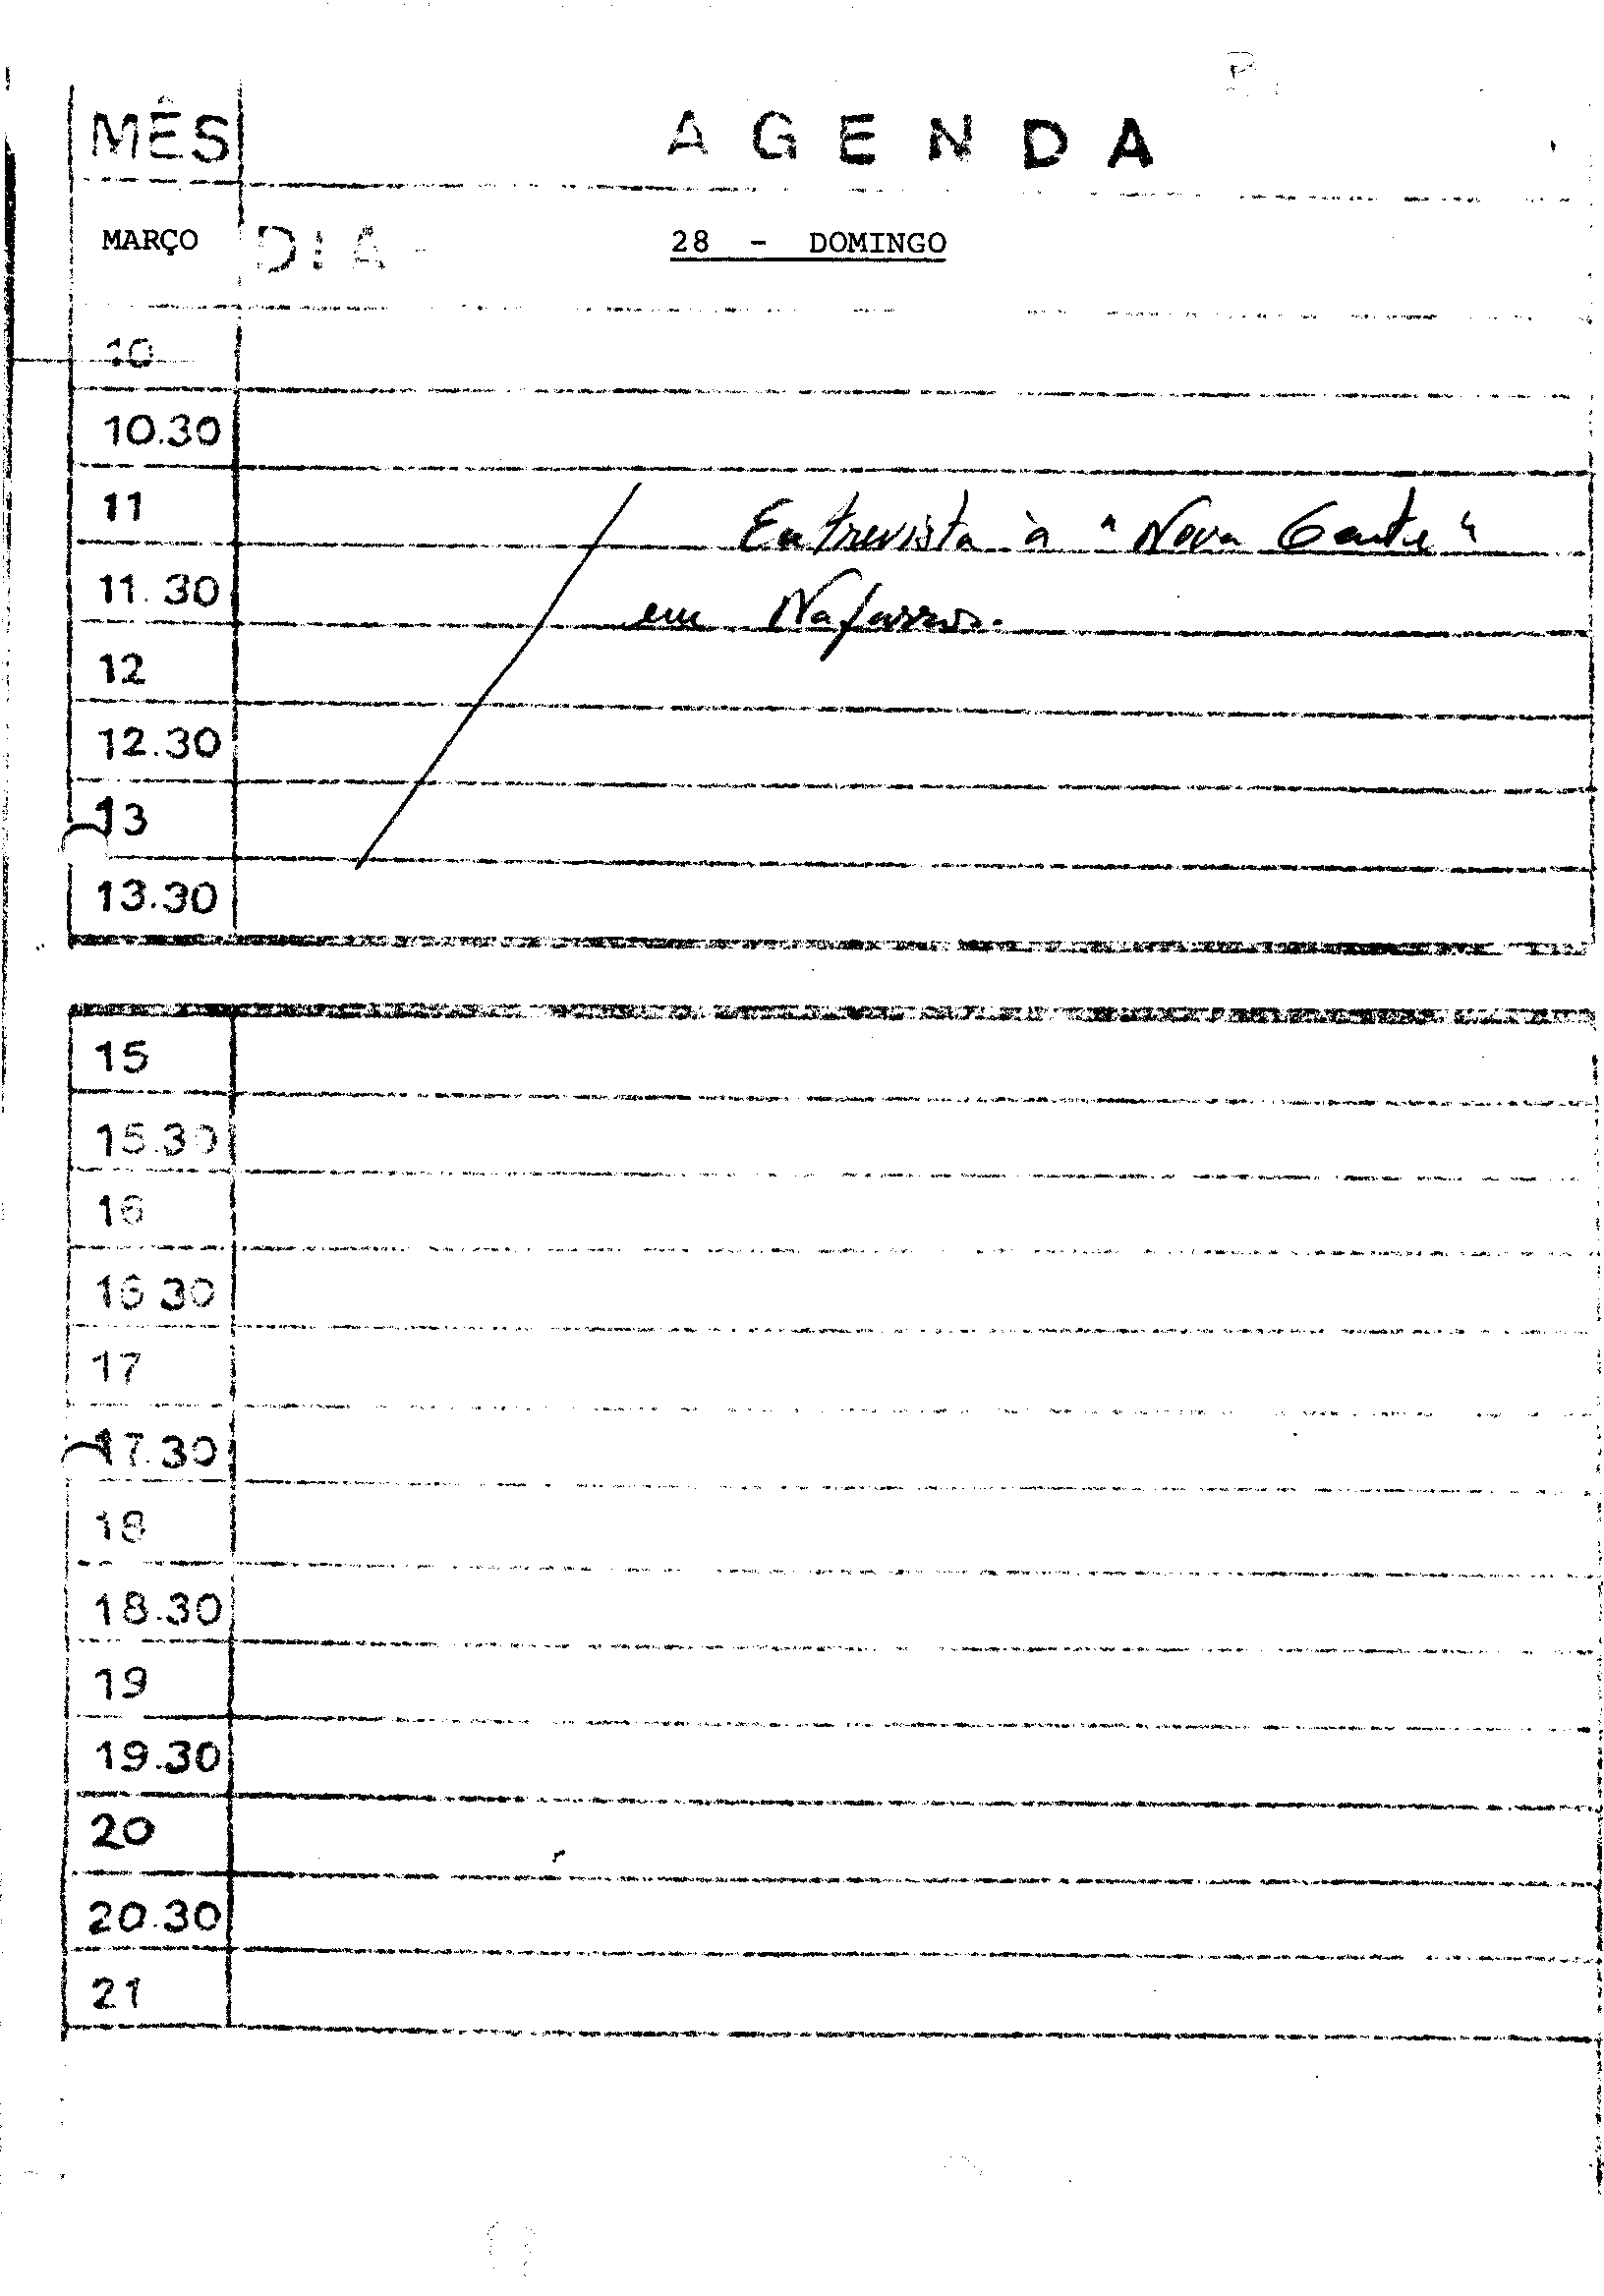 MÊS AGENDA
MARÇO DIA - 28 - DOMINGO
10
10.30
11 Entrevista à "Nova Gente"
11.30 em Nafarros.
12
12.30
13
13.30
15
15.30
16
16.30
17
17.30
18
18.30
19
19.30
20
20.30
21